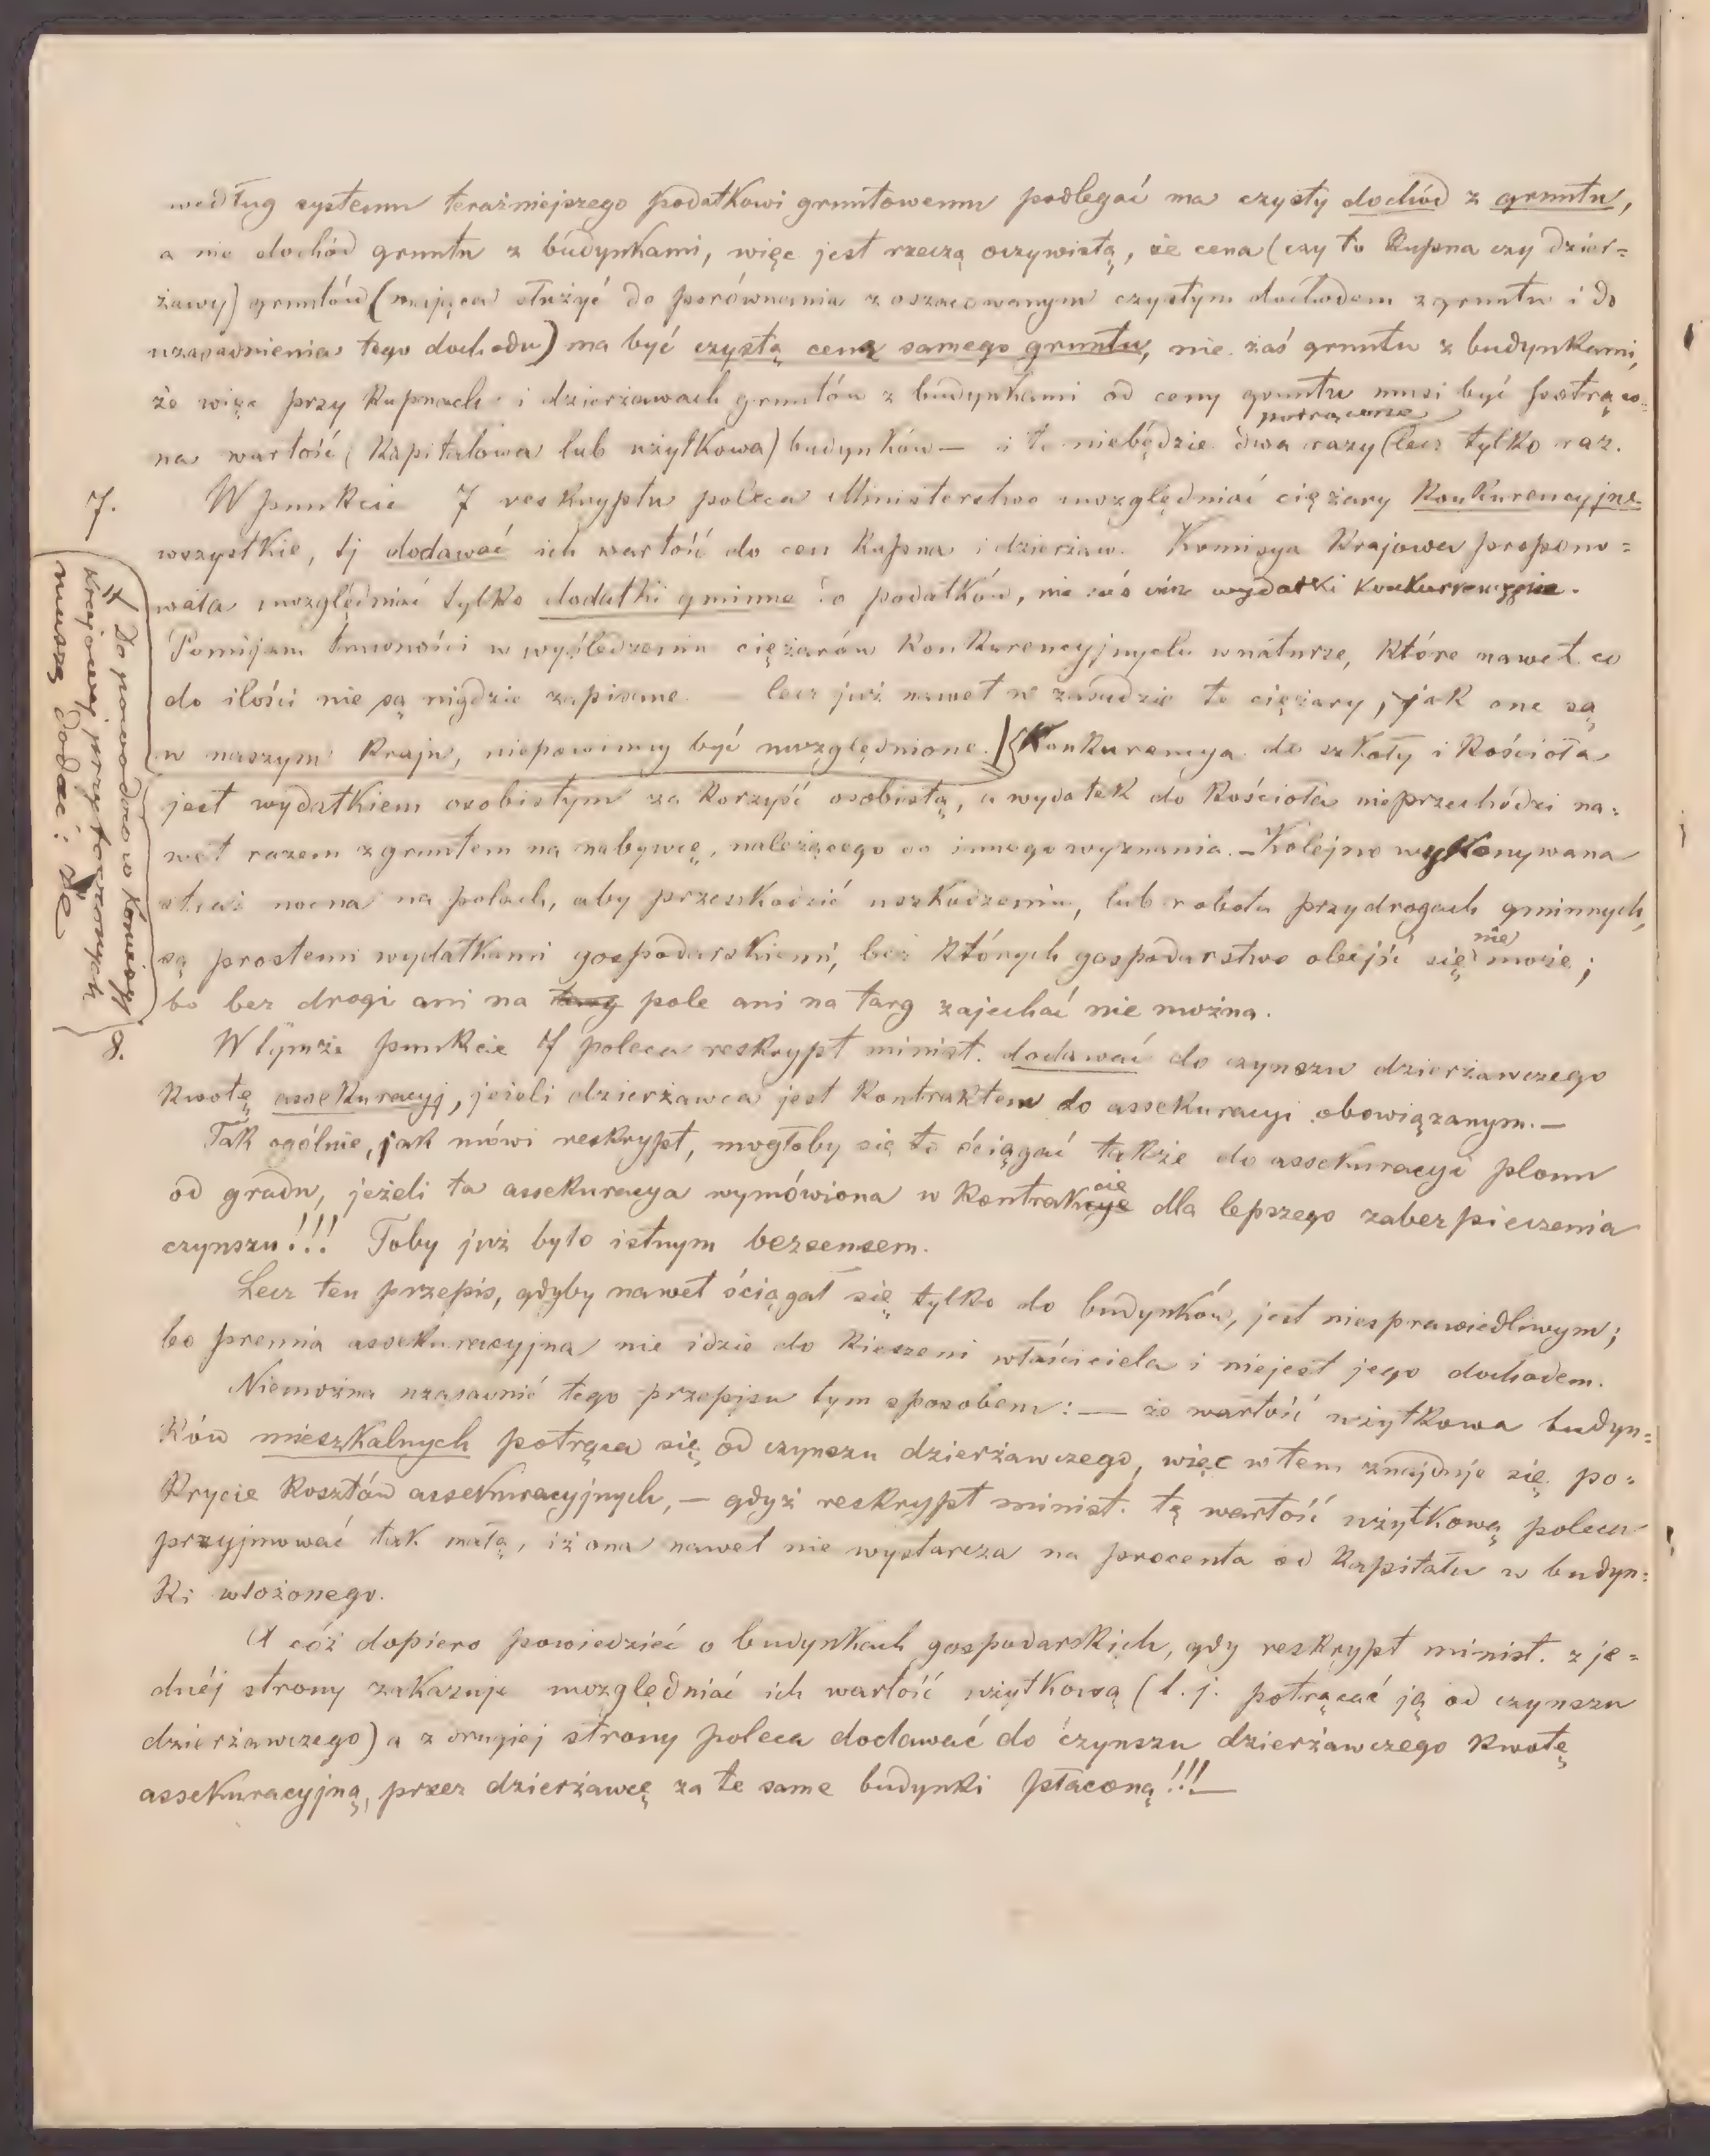 według systemu teraźniejszego podatkowi gruntowemu podlegać ma czysty dochód z gruntu,
a nie dochód gruntu z budynkami, więc jest rzeczą oczywistą, że cena (czy to kupna czy dzier=
żawy) gruntów (mająca służyć do porównania z oszacowanym czystym dochodem z gruntu i do
uzasadnienia tego dochodu) ma być czystą ceną samego gruntu, nie zaś gruntu z budynkami,
że więc przy kupnach i dzierżawach gruntów z budynkami od ceny gruntu musi być potrąco=
potrącone
na wartość (kapitałowa lub użytkowa) budynków — i to niebędzie dwa razy (lecz tylko raz.
7.
W punkcie 7 reskryptu poleca Ministerstwo uwzględniać ciężary konkurencyjne
wszystkie, tj dodawać ich wartość do cen kupna i dzierżaw. Komisya Krajowa propono=
wała uwzględniać tylko dodatki gminne do podatków, nie zaś wydatki konkurencyjne.
Pomijam trudności w wyśledzeniu ciężarów konkurencyjnych w naturze, które nawet co
do ilości nie są nigdzie zapisane — lecz już nawet w zasadzie te ciężary, jak one są
w naszym kraju, niepowinny być uwzględnione. Konkurencya do szkoły i kościoła
jest wydatkiem osobistym za korzyść osobistą, a wydatek do kościoła nieprzechodzi na=
wet razem z gruntem na nabywcę, należącego do innego wyznania. — Kolejno wykonywana
straż nocna na polach, aby przeszkodzić uszkodzeniu, lub robota przy drogach gminnych,
są prostemi wydatkami gospodarskiemi, bez których gospodarstwo obejść się nie może;
bo bez drogi ani na targ pole ani na targ zajechać nie można.
Do powodów Komisyi
krajowej przytoczonych
muszę dodać: że
8.
W tymże punkcie 7 poleca reskrypt minist. dodawać do czynszu dzierżawczego
kwotę assekuracyj, jeżeli dzierżawca jest kontraktem do assekuracyi obowiązanym. —
Tak ogólnie, jak mówi reskrypt, mogłoby się to ściągać także do assekuracyi plonu
od gradu, jeżeli ta assekuracya wymówiona w kontrakcye cie dla lepszego zabezpieczenia
czynszu!!! Toby już było istnym bezsensem.
Lecz ten przepis, gdyby nawet ściągał się tylko do budynków, jest niesprawiedliwym;
bo premia assekuracyjna nie idzie do kieszeni właściciela i niejest jego dochodem.
Niemożna uzasadnić tego przepisu tym sposobem: — że wartość użytkowa budyn=
ków mieszkalnych potrąca się od czynszu dzierżawczego, więc w tem znajduje się po=
krycie kosztów assekuracyjnych, — gdyż reskrypt minist. tą wartość użytkową poleca
przyjmować tak małą, iż ona nawet nie wystarcza na procenta od kapitału w budyn=
ki włożonego.
A cóż dopiero powiedzieć o budynkach gospodarskich, gdy reskrypt minist. z je=
dnéj strony zakazuje uwzględniać ich wartość użytkową (t. j. potrącać ją od czynszu
dzierżawczego) a z drugiej strony poleca dodawać do czynszu dzierżawczego kwotę
assekuracyjną, przez dzierżawcę za te same budynki płaconą!!! —